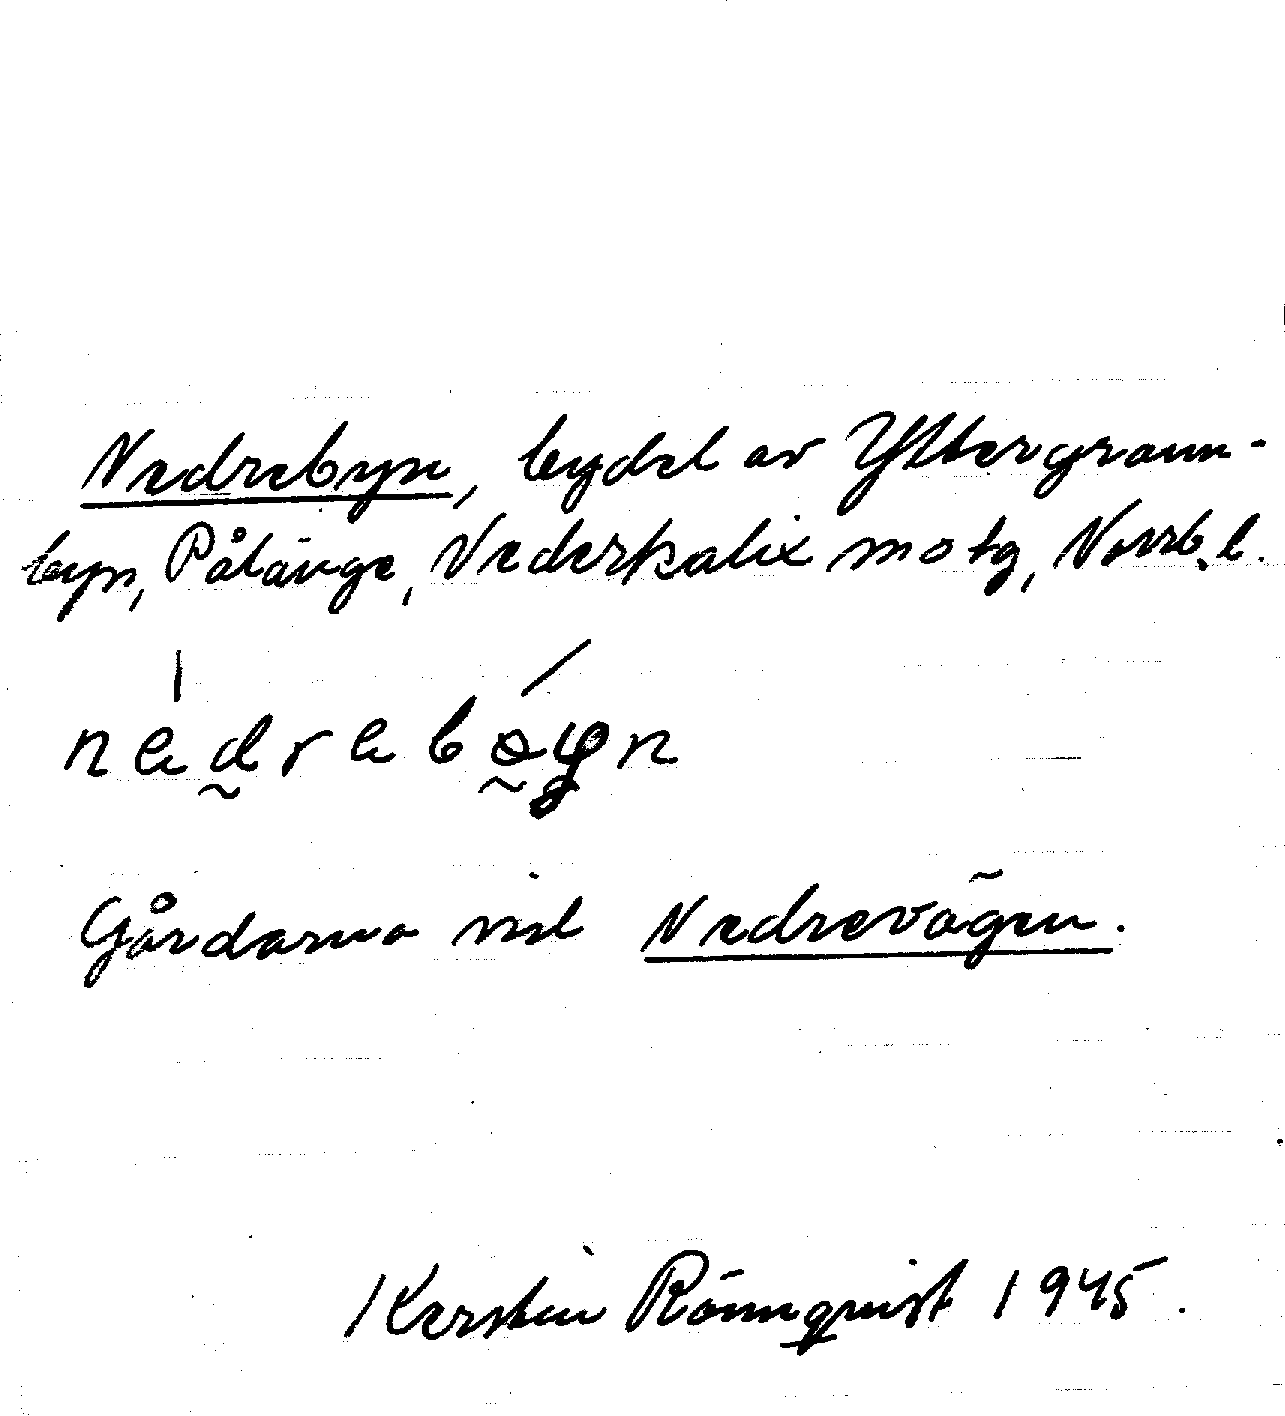 Nedrebyn, bydel av Yttergrann-
byn, Pålänge, Nederkalix mo tg, Norrb. l.
Gårdarna vid Nedrevägen.
Kerstin Rönnqvist 1945.